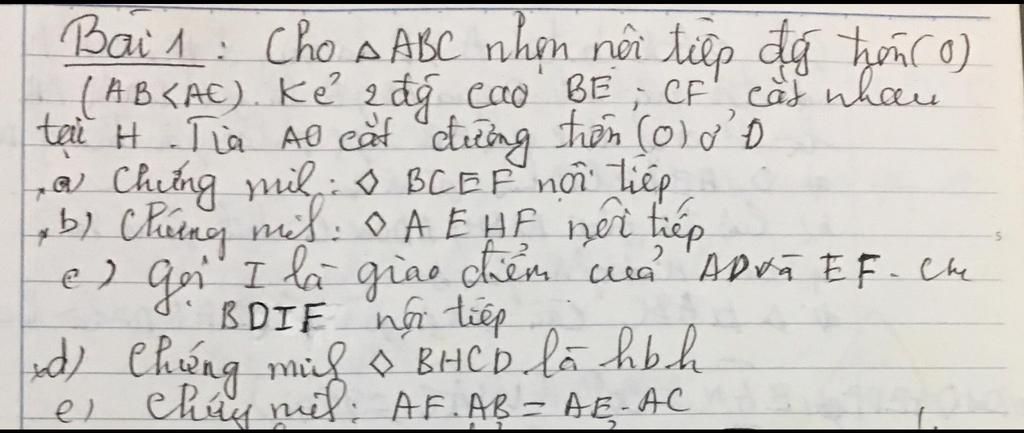 Bài 1 : Cho △ ABC nhọn nội tiếp đg tròn (O)
(AB<AC). Kẻ 2 đg cao BE ; CF cắt nhau
tại H. Tia AO cắt đường tròn (O) ở D
a) Chứng mih : ◇ BCEF nội tiếp
b) Chứng mih : ◇ AEHF nội tiếp
c) Gọi I là giao điểm của AD và EF. Cm
BDIF nội tiếp
d) Chứng mih ◇ BHCD là hbh
e) Chứng mih : AF.AB = AE.AC